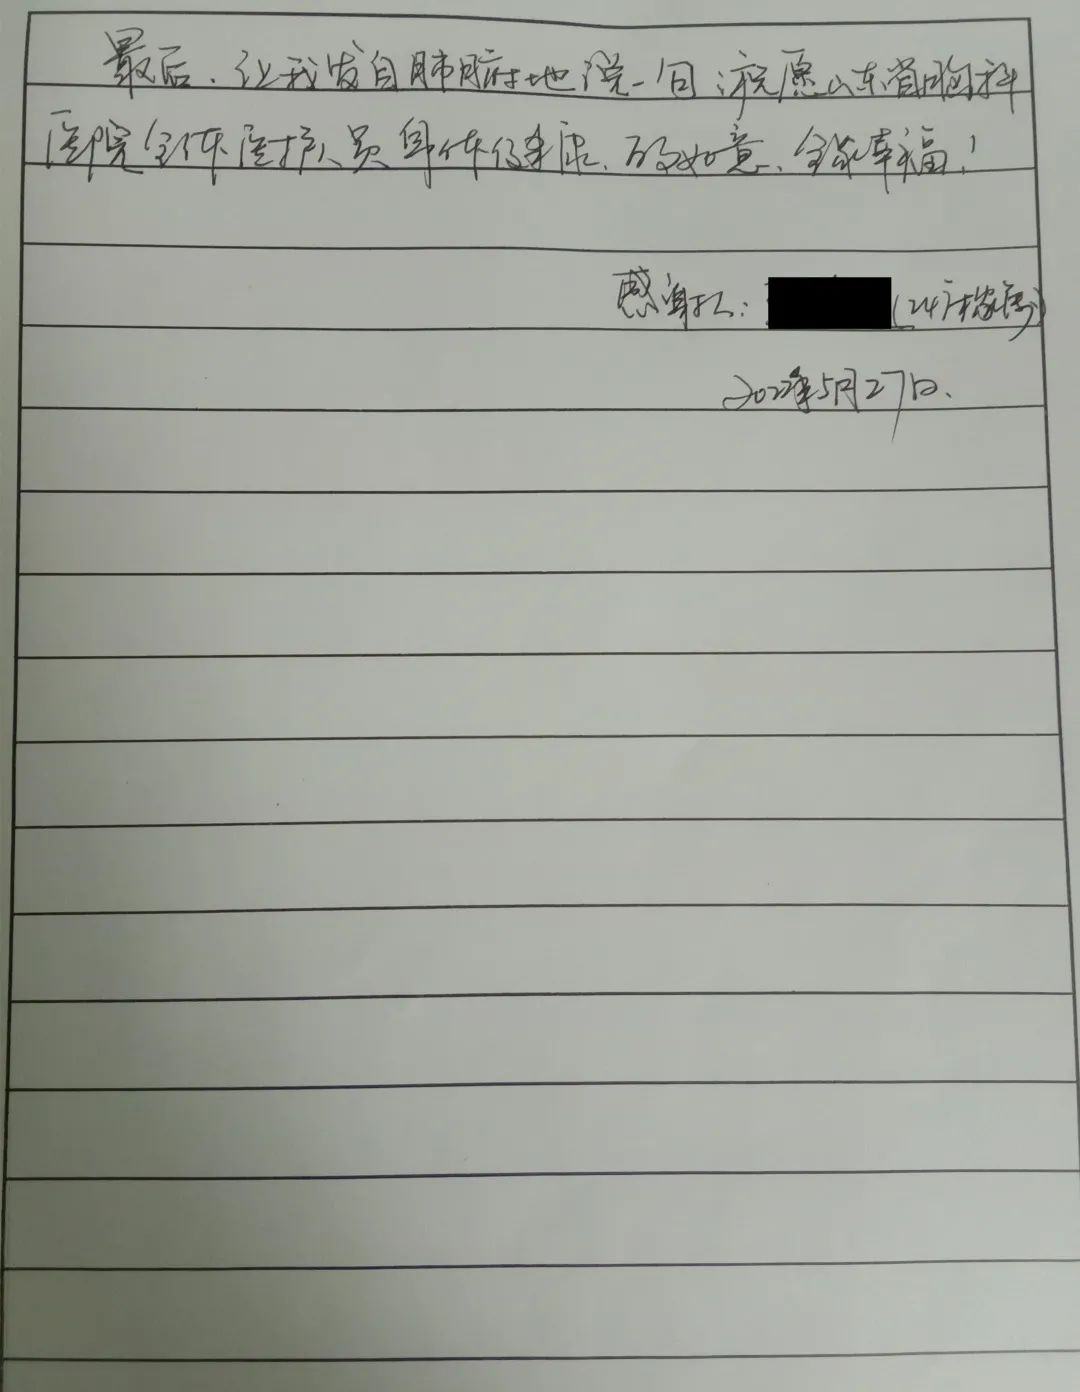 最后，让我发自肺腑地说一句：祝愿山东省胸科
医院全体医护人员身体健康、万事如意、全家幸福！
感谢人：（24床家属）
2022年5月27日.